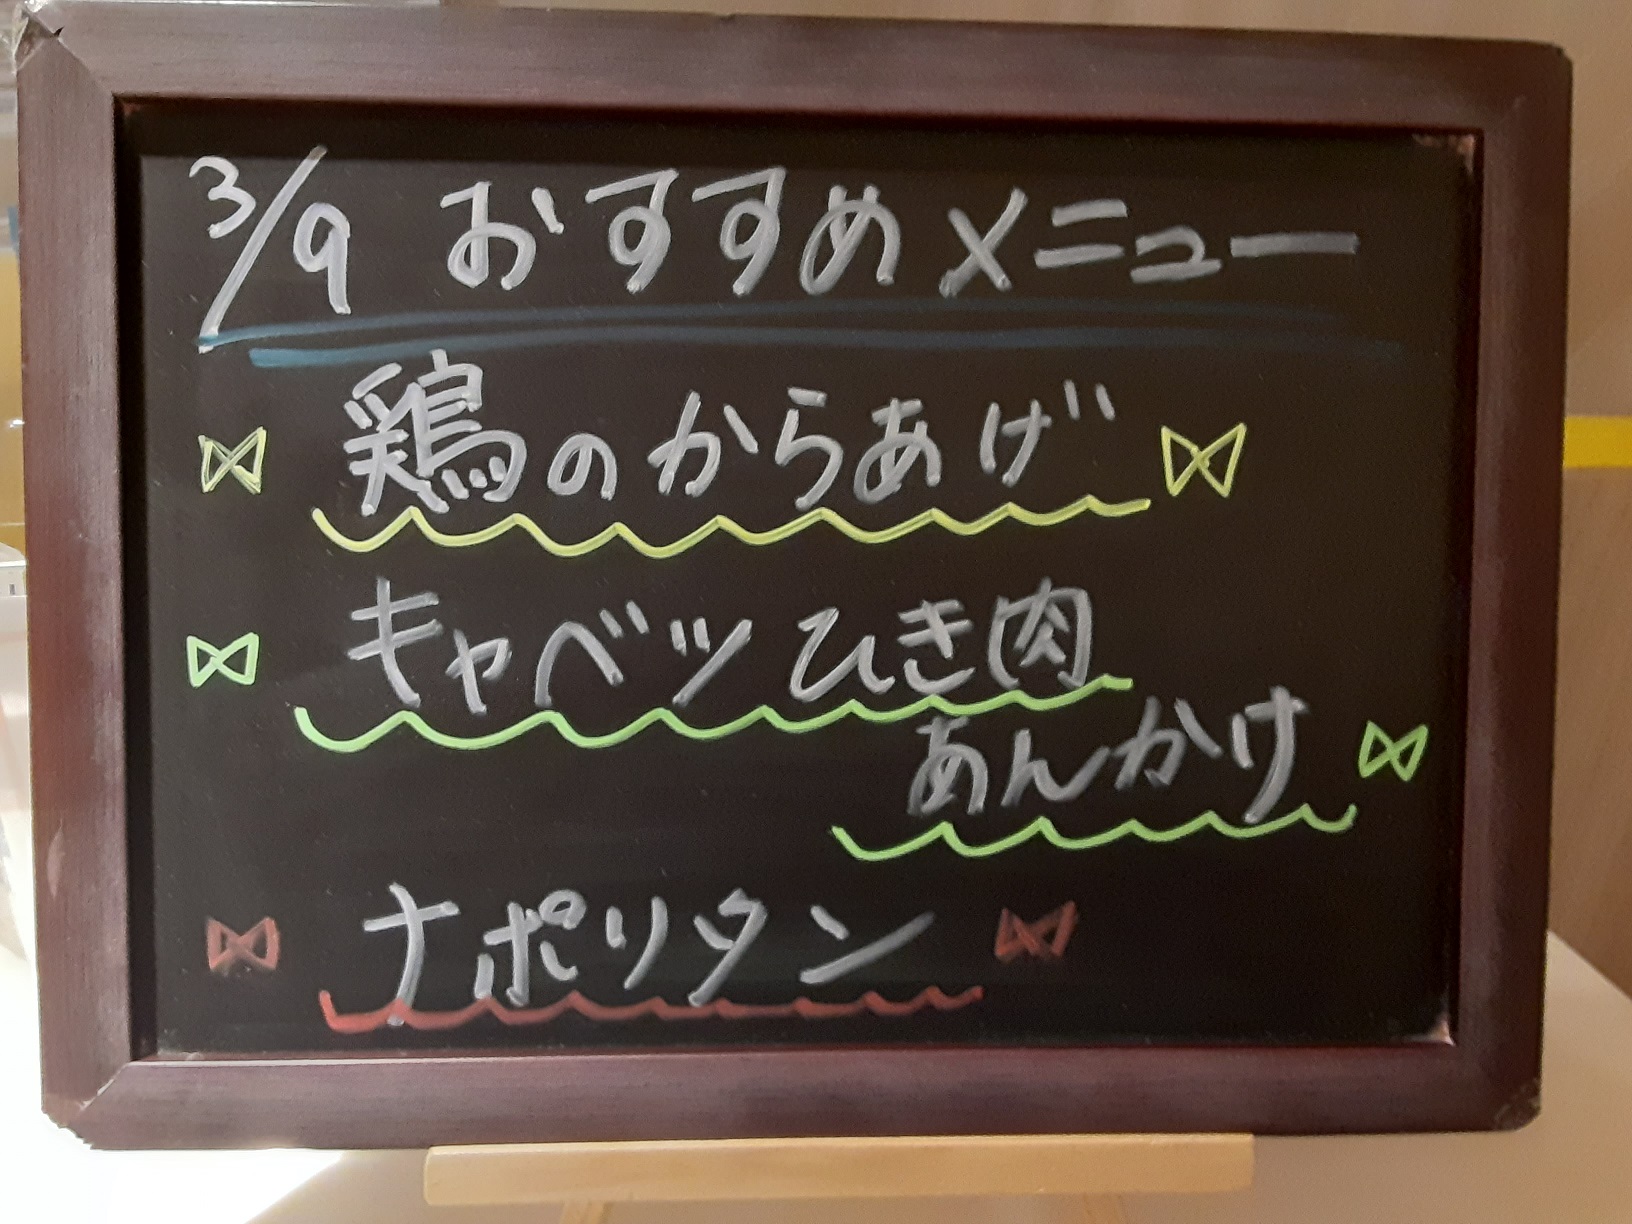 3/9 おすすめメニュー
鶏のからあげ
キャベツひき肉
あんかけ
ナポリタン